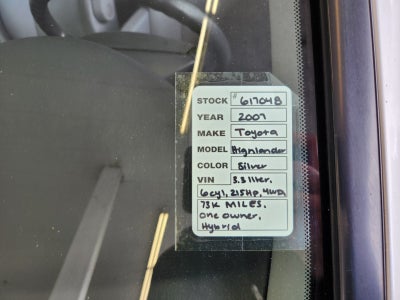 STOCK # 61704B
YEAR 2007
MAKE Toyota
MODEL Highlander
COLOR Silver
VIN 3.3 liter,
6 cyl, 215 HP, 4WD
73K MILES,
One owner,
Hybrid